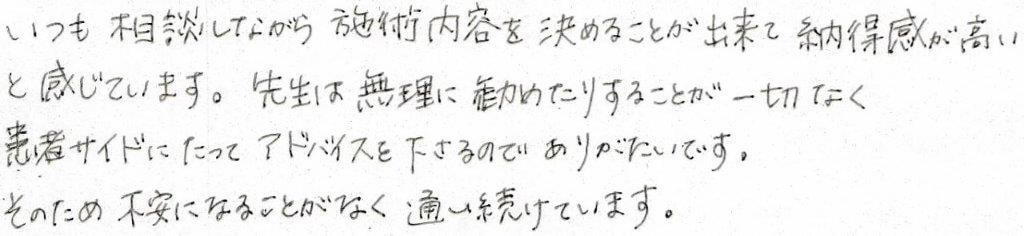 いつも相談しながら施術内容を決めることが出来て納得感が高い
と感じています。先生は無理に勧めたりすることが一切なく
患者サイドにたってアドバイスを下さるのでありがたいです。
そのため不安になることがなく通い続けています。